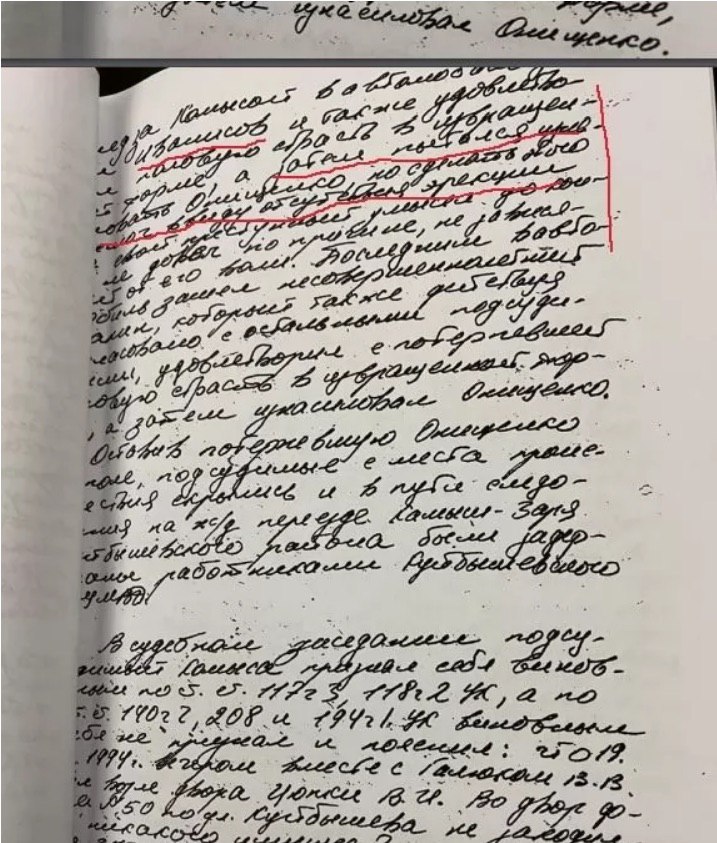 изнасиловал Онищенко.
Камысой в автомобиль
Иванисов и также удовлетво-
половую страсть в извращен-
форме, а затем пытался изна-
ловать Онищенко, но сделать этого
смог ввиду отсутствия эрекции
свой преступный умысел до кон-
не довел по причине, не завися-
от его воли. Последним в авто-
биль зашел несовершеннолетний
который также действуя
ласовано с остальными подсуди-
ыми, удовлетворил с потерпевшей
овую страсть в извращенной фор-
, а затем изнасиловал Онищенко.
Оставив потерпевшую Онищенко
поле, подсудимые с места проис-
ествия скрылись и в пути следо-
ания на ж/д переезде Камыш-Заря
йбышевского района были задер-
аны работниками Куйбышевского
В судебном заседании подсу-
димый Камыса признал себя винов-
ным по ст. ст. 117 ч 3, 118 ч 2 УК, а по
ст. 140 ч 2, 208 и 194 ч 1 УК виновным
себя не признал и пояснил: что 19.
1994г. вечером вместе с Галюком В.В.
возле двора Цюпки В.И. Во двор до-
№50 по ул. Куйбышева не заходил
никакого